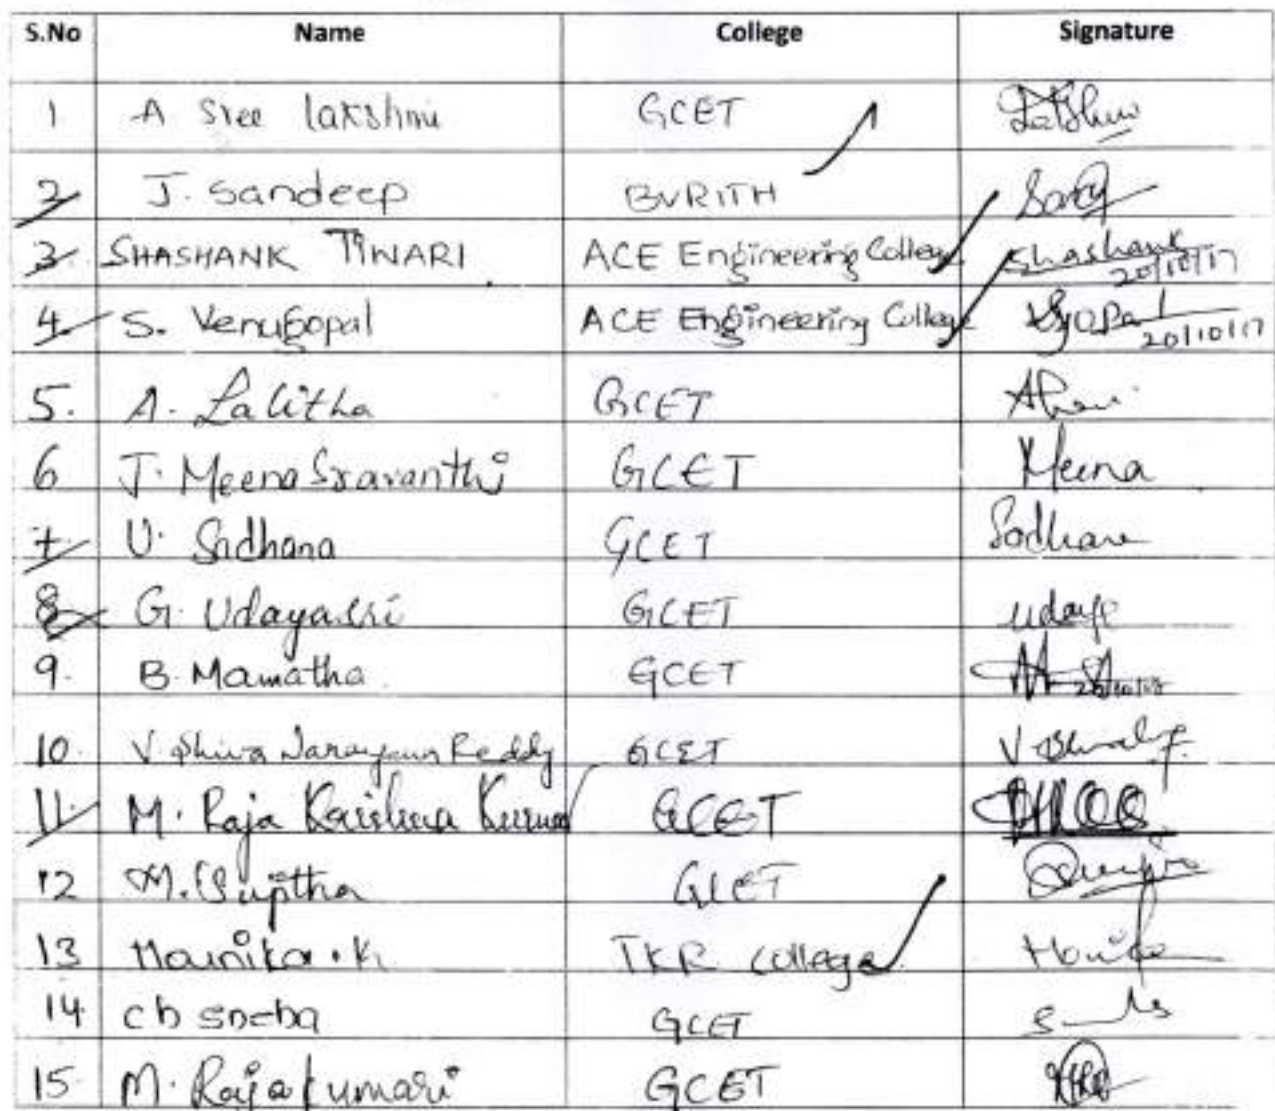 S.No Name College Signature
1 A Sree lakshmi GCET Lakshmi
2 J. Sandeep BVRITH
3. SHASHANK TIWARI. ACE Engineering College Shashank 20/10/17
4. S. Venugopal ACE Engineering College 20/10/17
5. A. Lalitha GCET
6 J. Meena Sravanthi GCET Meena
7 U. Sadhana GCET Sadhana
8 G. Udayasri GCET
9. B. Mamatha. GCET
10. V. Shiva Narayana Reddy GCET
11 M. Raja Krishna Kumar GCET
12 M. Sujitha GCET
13 Mounika. K TKR College
14 ch sneha GCET
15 M. Raja kumari GCET